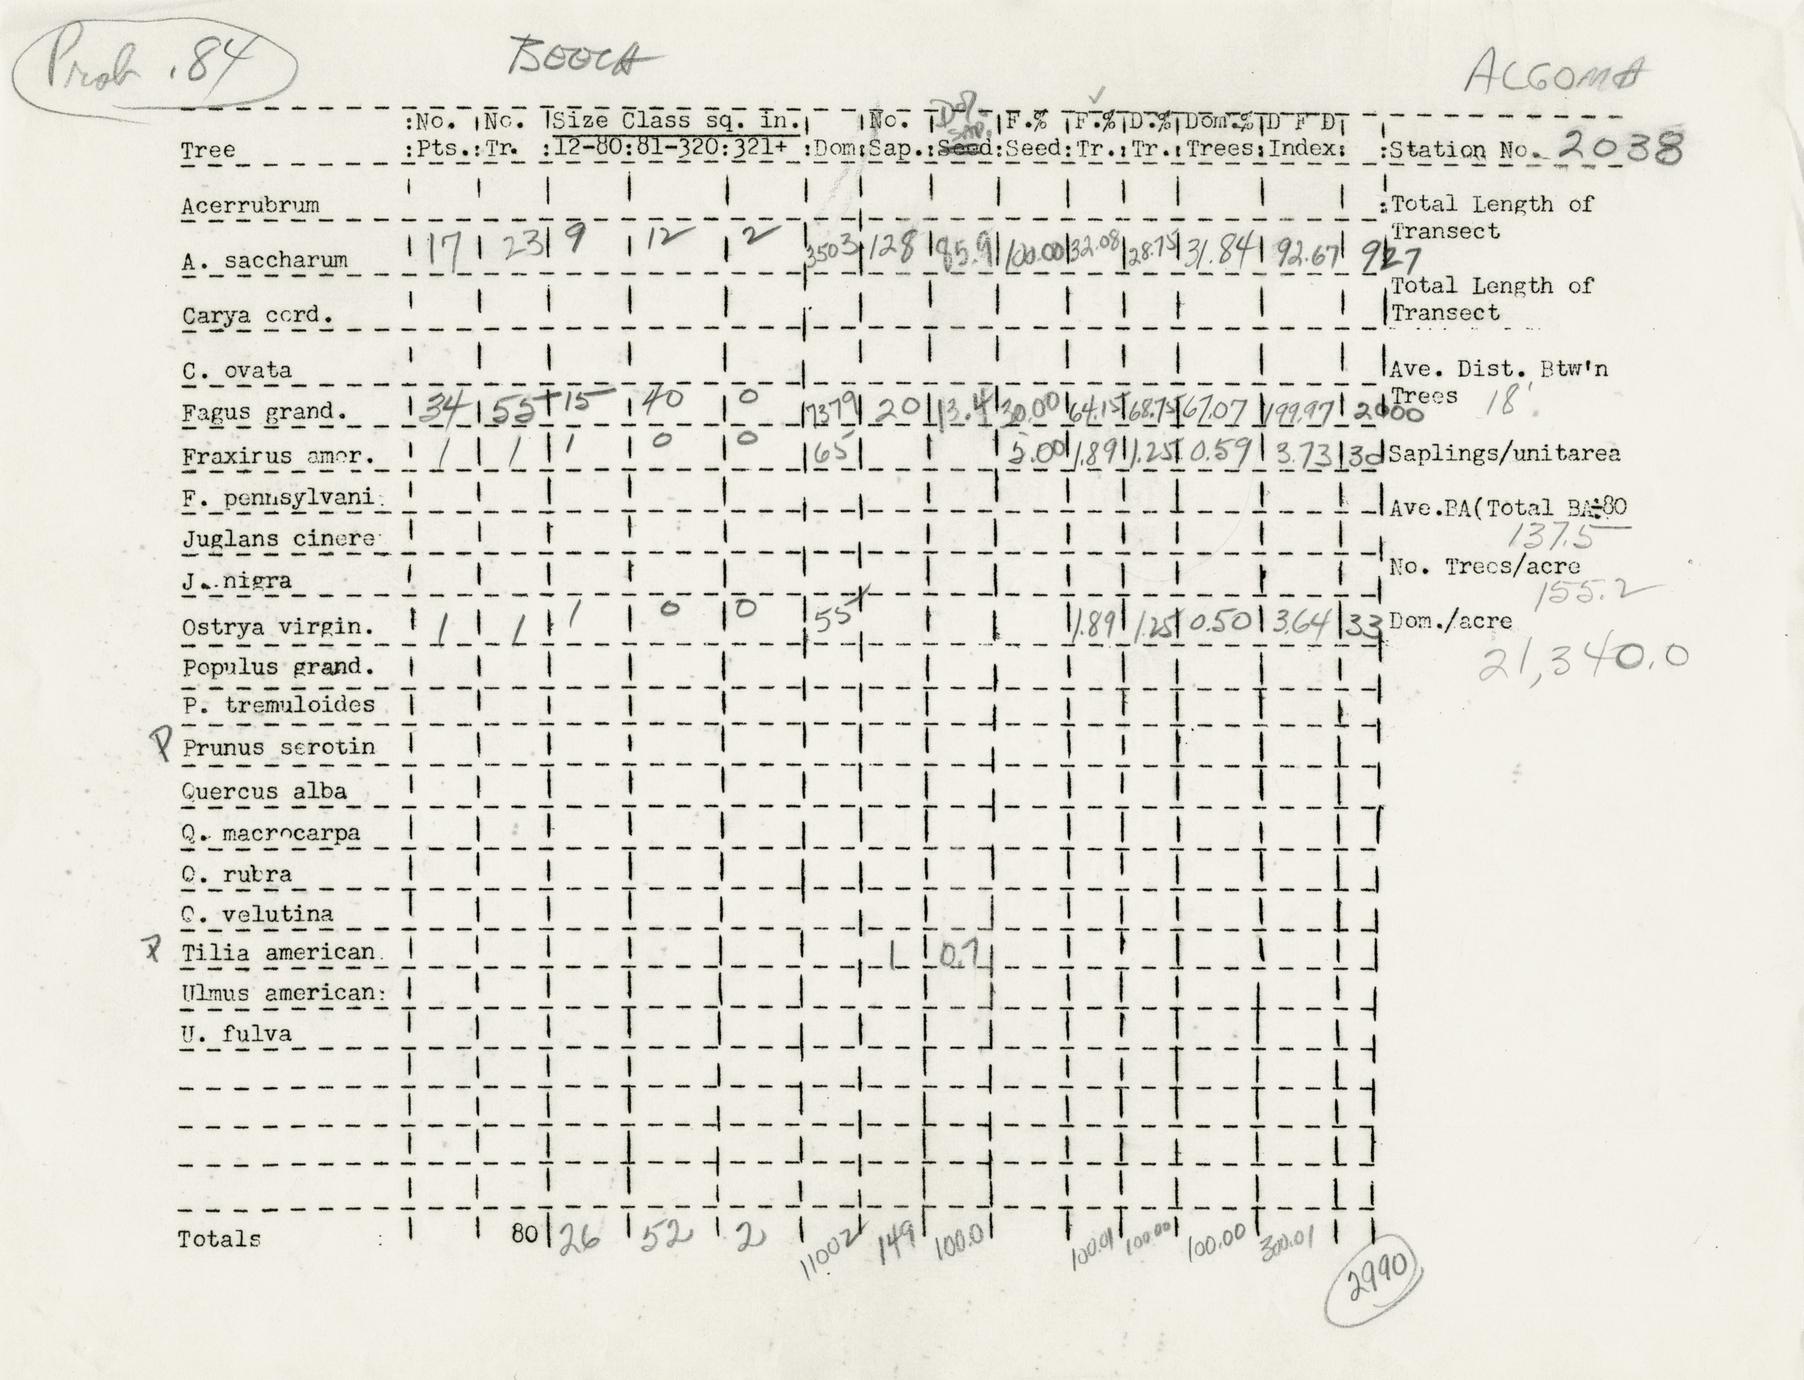 Prob .84
BEECH
ALGOMA
:No. :No. Size Class sq. in. No. D% F.% F.% D.% Dom.% D F D
Tree :Pts.:Tr. :12-80:81-320:321+ :Dom:Sap.: Sap. Seed:Seed:Tr.:Tr.:Trees:Index: :Station No. 2038
Acerrubrum :Total Length of
Transect
A. saccharum 17 23 9 12 2 3503 128 85.9 100.00 32.08 28.75 31.84 92.67 927
Total Length of
Carya cord. Transect
C. ovata Ave. Dist. Btw'n
Trees 18'.
Fagus grand. 34 55 15 40 0 7379 20 13.4 30.00 64.15 68.75 67.07 199.97 2000
Fraxirus amer. 1 1 1 0 0 65 5.00 1.89 1.25 0.59 3.73 Saplings/unitarea
F. pennsylvani: Ave.BA(Total BA÷80
137.5
Juglans cinere
No. Trees/acre
J. nigra 155.2
Ostrya virgin. 1 1 1 0 0 55 1.89 1.25 0.50 3.64 33 Dom./acre
21,340.0
Populus grand.
P. tremuloides
P Prunus serotin
Quercus alba
Q. macrocarpa
Q. rubra
Q. velutina
P Tilia american. 1 0.7
Ulmus american:
U. fulva
Totals : 80 26 52 2 11002 149 100.0 100.01 100.00 100.00 300.01 2990